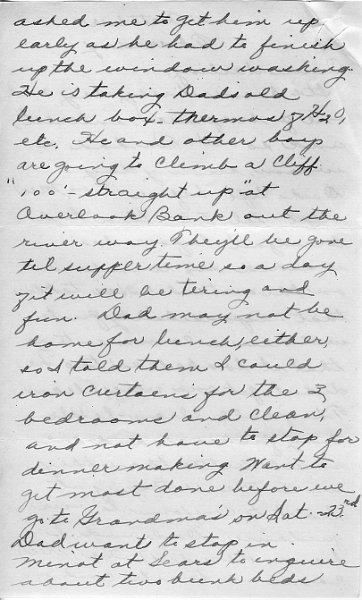 asked me to get him up
early as he had to finish
up the window washing.
He is taking Dads old
lunch box - thermos of H2O,
etc. He and other boys
are going to climb a cliff
"100' - straight up" at
Overlook Bank out the
river way. They'll be gone
til supper time so a day
of it will be tiring and
fun. Dad may not be
home for lunch, either,
so I told them I could
iron curtains for the 3
bedrooms and clean,
and not have to stop for
dinner making. Want to
get most done before we
go to Grandma's on Sat. - 23rd
Dad want to stop in
Minot at Sears to inquire
about two bunk beds